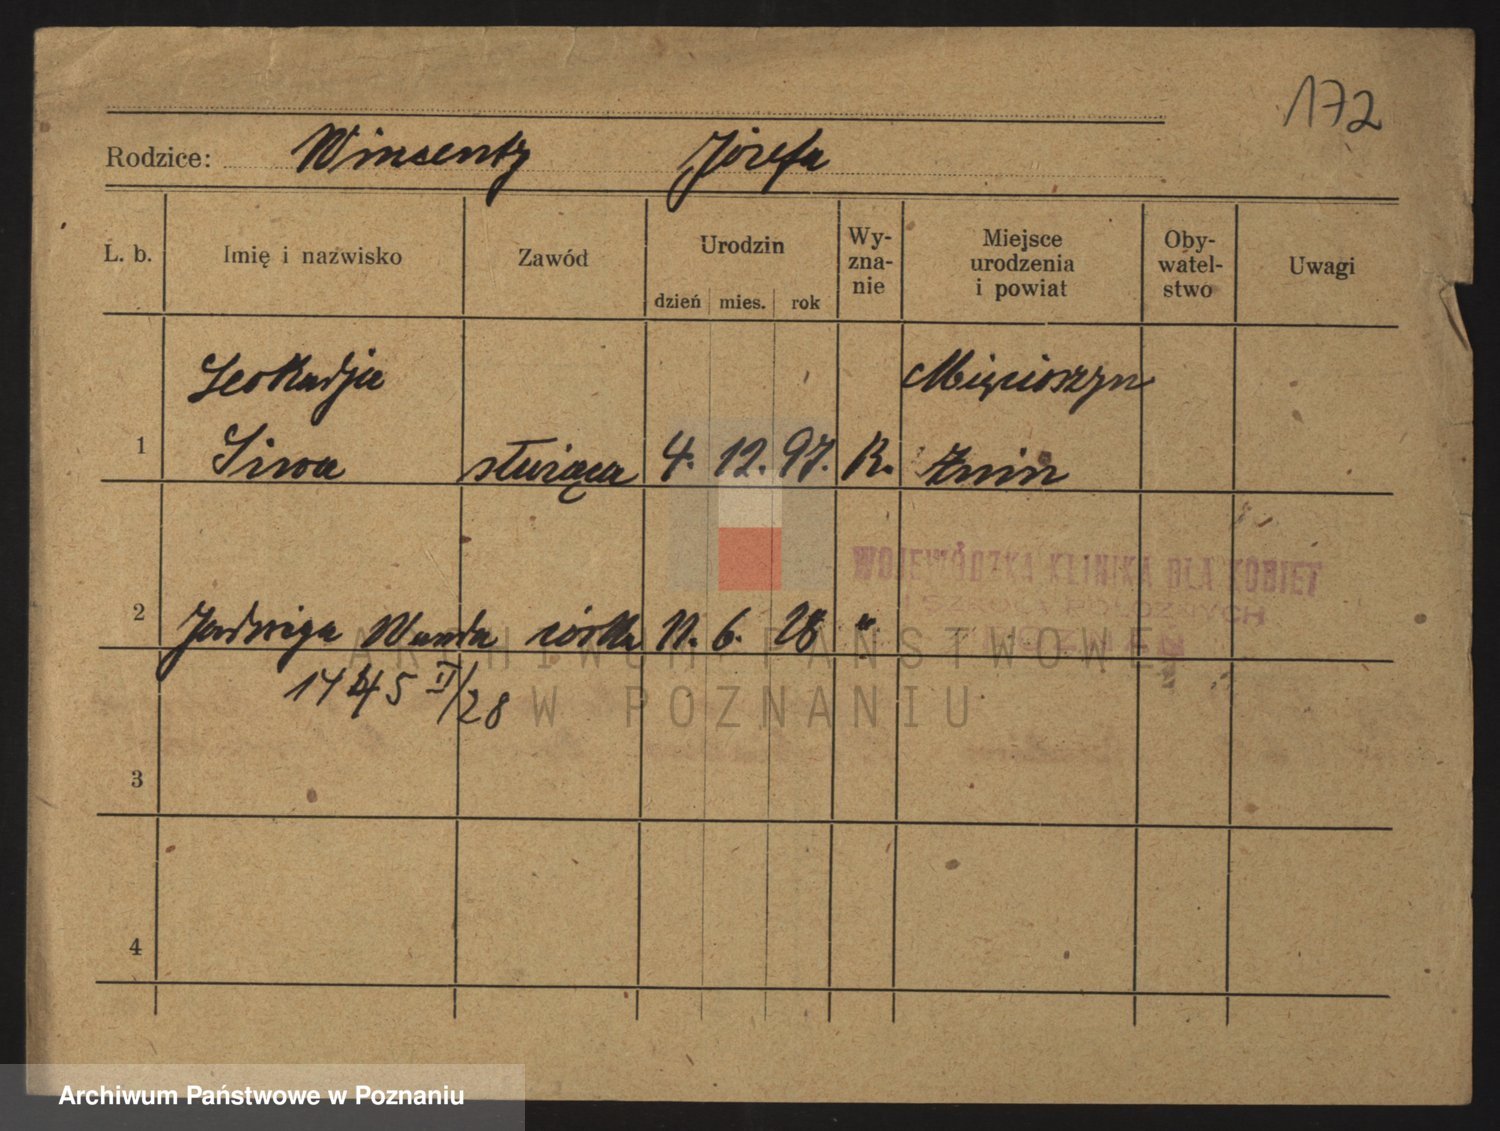 172
Rodzice: Wincenty Józefa
L. b. Imię i nazwisko Zawód Urodzin dzień mies. rok Wy-zna-nie Miejsce urodzenia i powiat Oby-watel-stwo Uwagi
Leokadja Mięcioszyn
1 Siwa służąca 4. 12. 97. R. Żnin
WOJEWÓDZKA KLINIKA DLA KOBIET
I SZKOŁA POŁOŻNYCH
2 Jadwiga Wanda córka 11. 6. 28 "
ARCHIWUM PAŃSTWOWE
W POZNANIU
1745 II/28
3
4
Archiwum Państwowe w Poznaniu